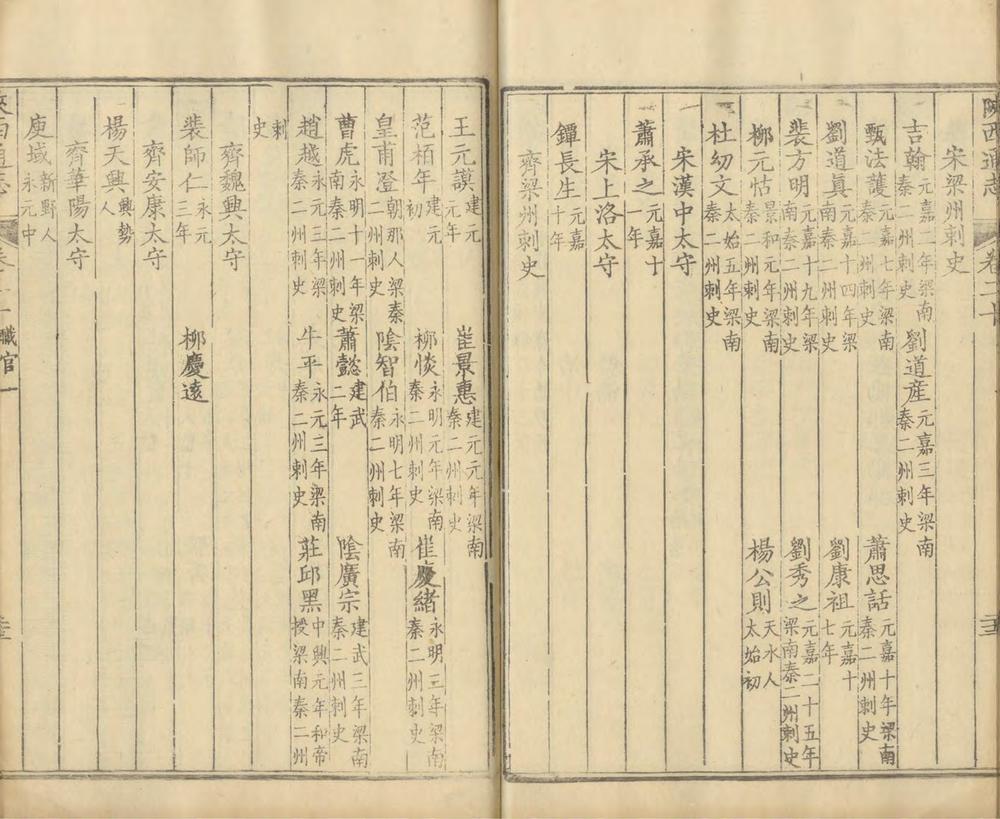 陝西通志 卷二十
宋梁州刺史
吉翰元嘉二年梁南秦二州刺史 劉道産元嘉三年梁南秦二州刺史
甄法護元嘉七年梁南秦二州刺史 蕭思話元嘉十年梁南秦二州刺史
劉道眞元嘉十四年梁南秦二州刺史 劉康祖元嘉十七年
裴方明元嘉十九年梁南秦二州刺史 劉秀之元嘉二十五年梁南秦二州刺史
柳元怙景和元年梁南秦二州刺史 楊公則天水人太始初
杜幼文太始五年梁南秦二州刺史
宋漢中太守
蕭承之元嘉十一年
宋上洛太守
鐔長生元嘉十年
齊梁州刺史
王元謨建元元年 崔景惠建元元年梁南秦二州刺史
范栢年建元初 柳惔永明元年梁南秦二州刺史 崔慶緒永明三年梁南秦二州刺史
皇甫澄朝那人梁秦二州刺史 陰智伯永明七年梁南秦二州刺史
曹虎永明十一年梁南秦二州刺史 蕭懿建武二年 陰廣宗建武三年梁南秦二州刺史
趙越永元三年梁秦二州刺史 牛平永元三年梁南秦二州刺史 莊邱黑中興元年和帝授梁南秦二州
刺史
齊魏興太守
裴師仁永元三年 柳慶遠
齊安康太守
楊天興興勢人
齊華陽太守
庾域新野人永元中
陝西通志 職官一